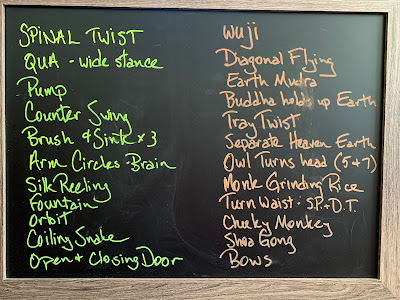 SPINAL TWIST
QUA - wide stance
Pump
Counter Swing
Brush & Sink x 3
Arm Circles - Brain
Silk Reeling
Fountain
Orbit
Coiling Snake
Open & Closing Door
wuji
Diagonal Flying
Earth Mudra
Buddha holds up Earth
Tray Twist
Separate Heaven Earth
Owl Turns head (5+7)
Monk Grinding Rice
Turn Waist: S.P.+D.T.
Cheeky Monkey
Shoa Gong
Bows